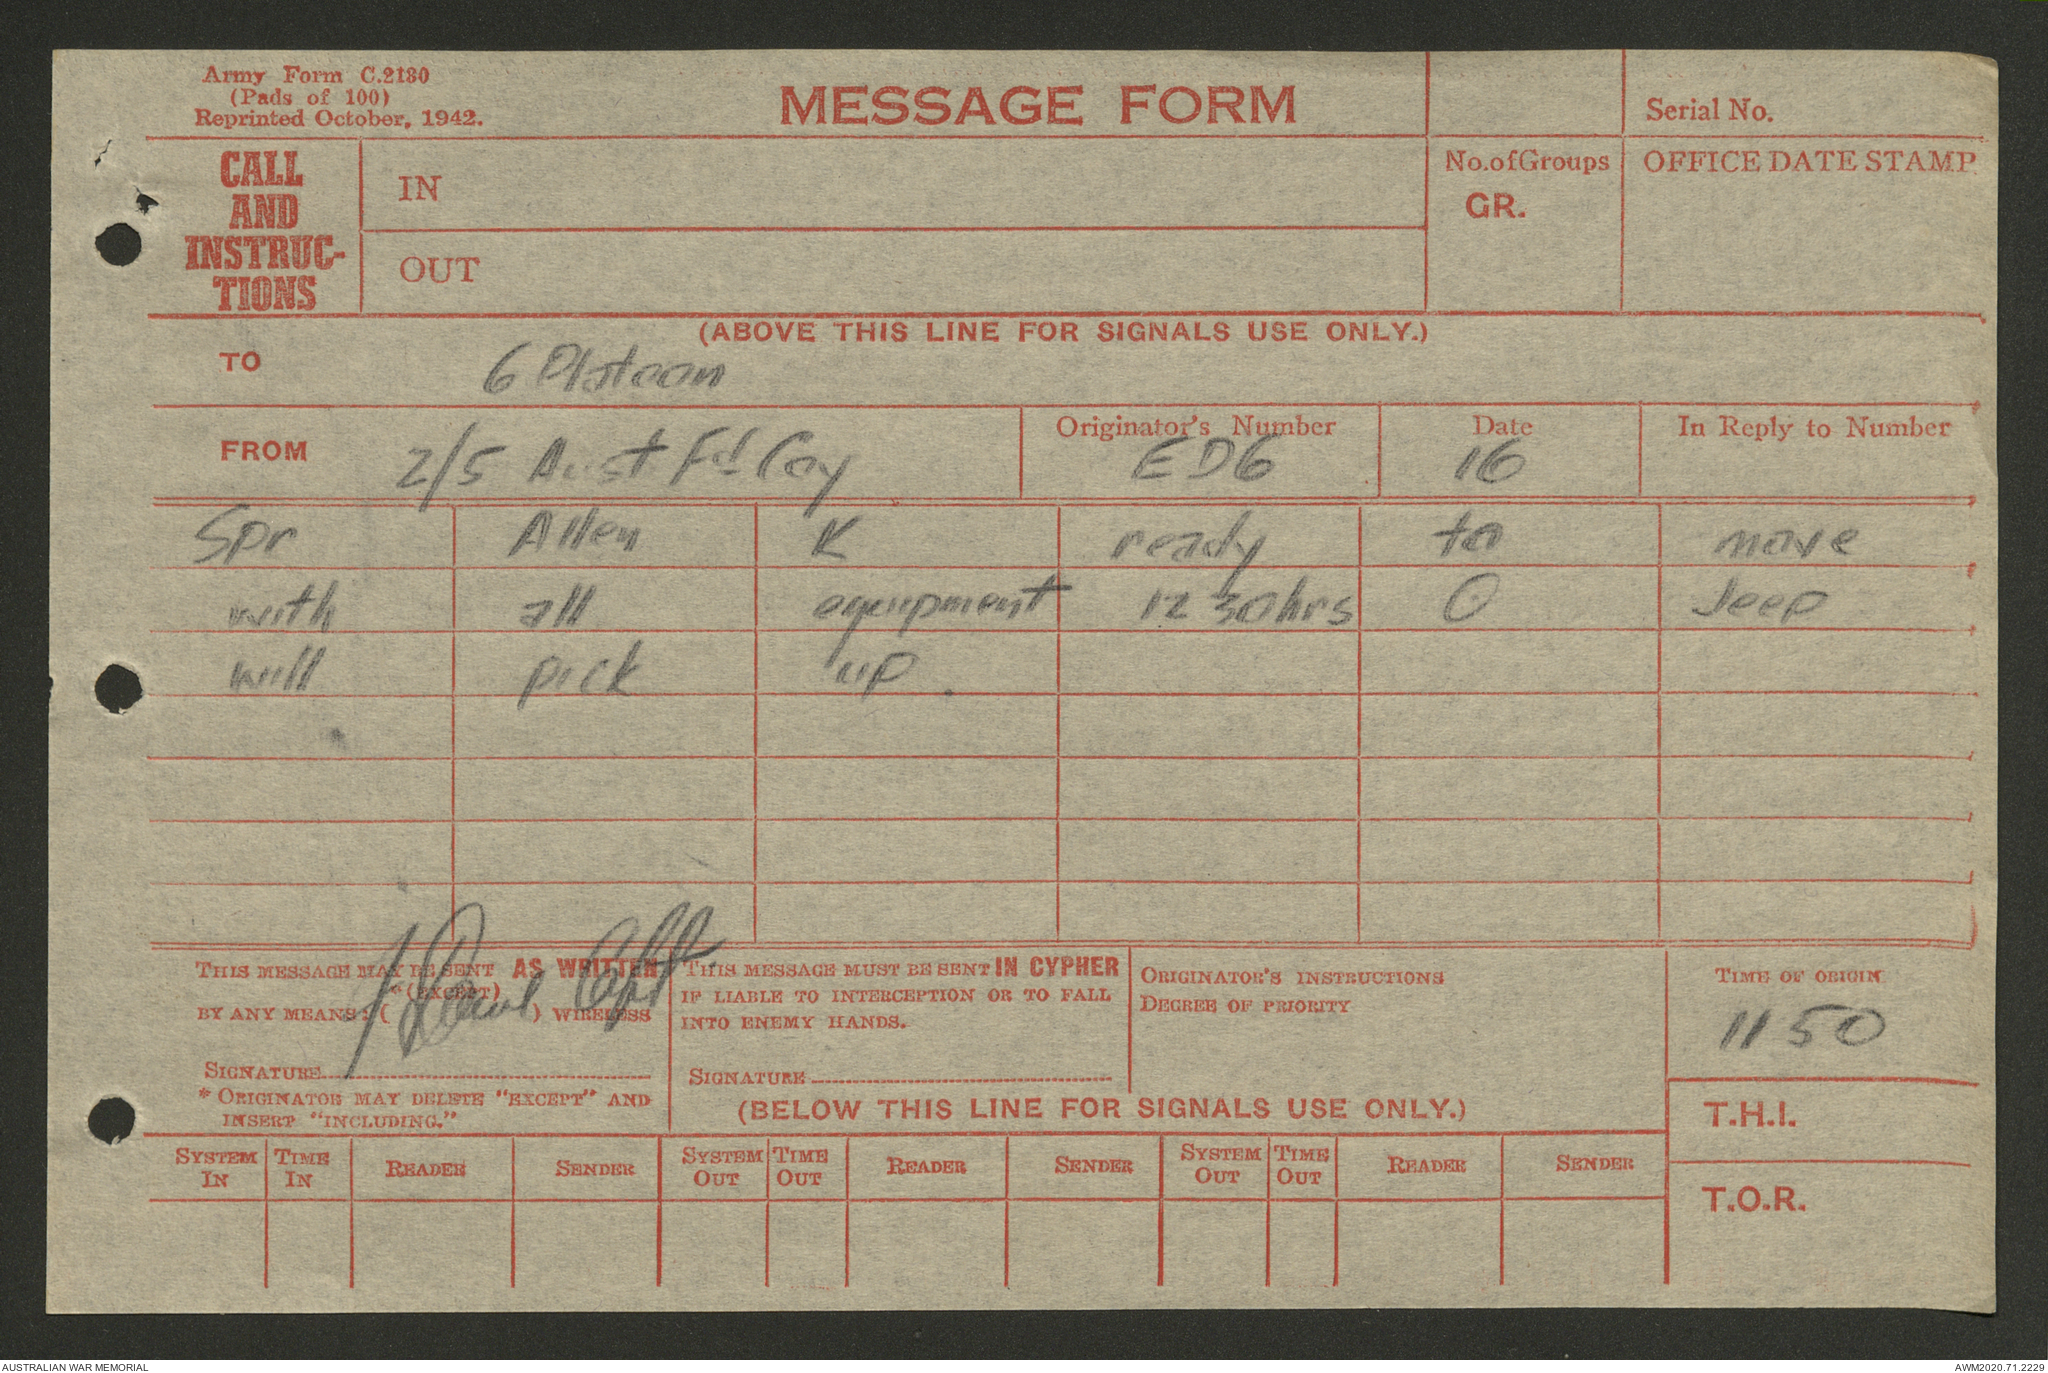 Army Form C.2130
(Pads of 100)
Reprinted October, 1942.
MESSAGE FORM
Serial No.
CALL AND INSTRUC-TIONS
IN
OUT
No. of Groups
GR.
OFFICE DATE STAMP
(ABOVE THIS LINE FOR SIGNALS USE ONLY.)
TO 6 Platoon
FROM 2/5 Aust Fd Coy
Originator's Number ED6
Date 16
In Reply to Number
Spr Allen K ready to move
with all equipment 12 30hrs O Jeep
will pick up.
THIS MESSAGE MAY BE SENT AS WRITTEN
*(EXCEPT)
BY ANY MEANS: ( ) WIRELESS
Capt
SIGNATURE
* ORIGINATOR MAY DELETE "EXCEPT" AND
INSERT "INCLUDING."
THIS MESSAGE MUST BE SENT IN CYPHER
IF LIABLE TO INTERCEPTION OR TO FALL
INTO ENEMY HANDS.
SIGNATURE
ORIGINATOR'S INSTRUCTIONS
DEGREE OF PRIORITY
TIME OF ORIGIN
11 50
(BELOW THIS LINE FOR SIGNALS USE ONLY.)
T.H.I.
T.O.R.
SYSTEM IN TIME IN READER SENDER SYSTEM OUT TIME OUT READER SENDER SYSTEM OUT TIME OUT READER SENDER
AUSTRALIAN WAR MEMORIAL
AWM2020.71.2229